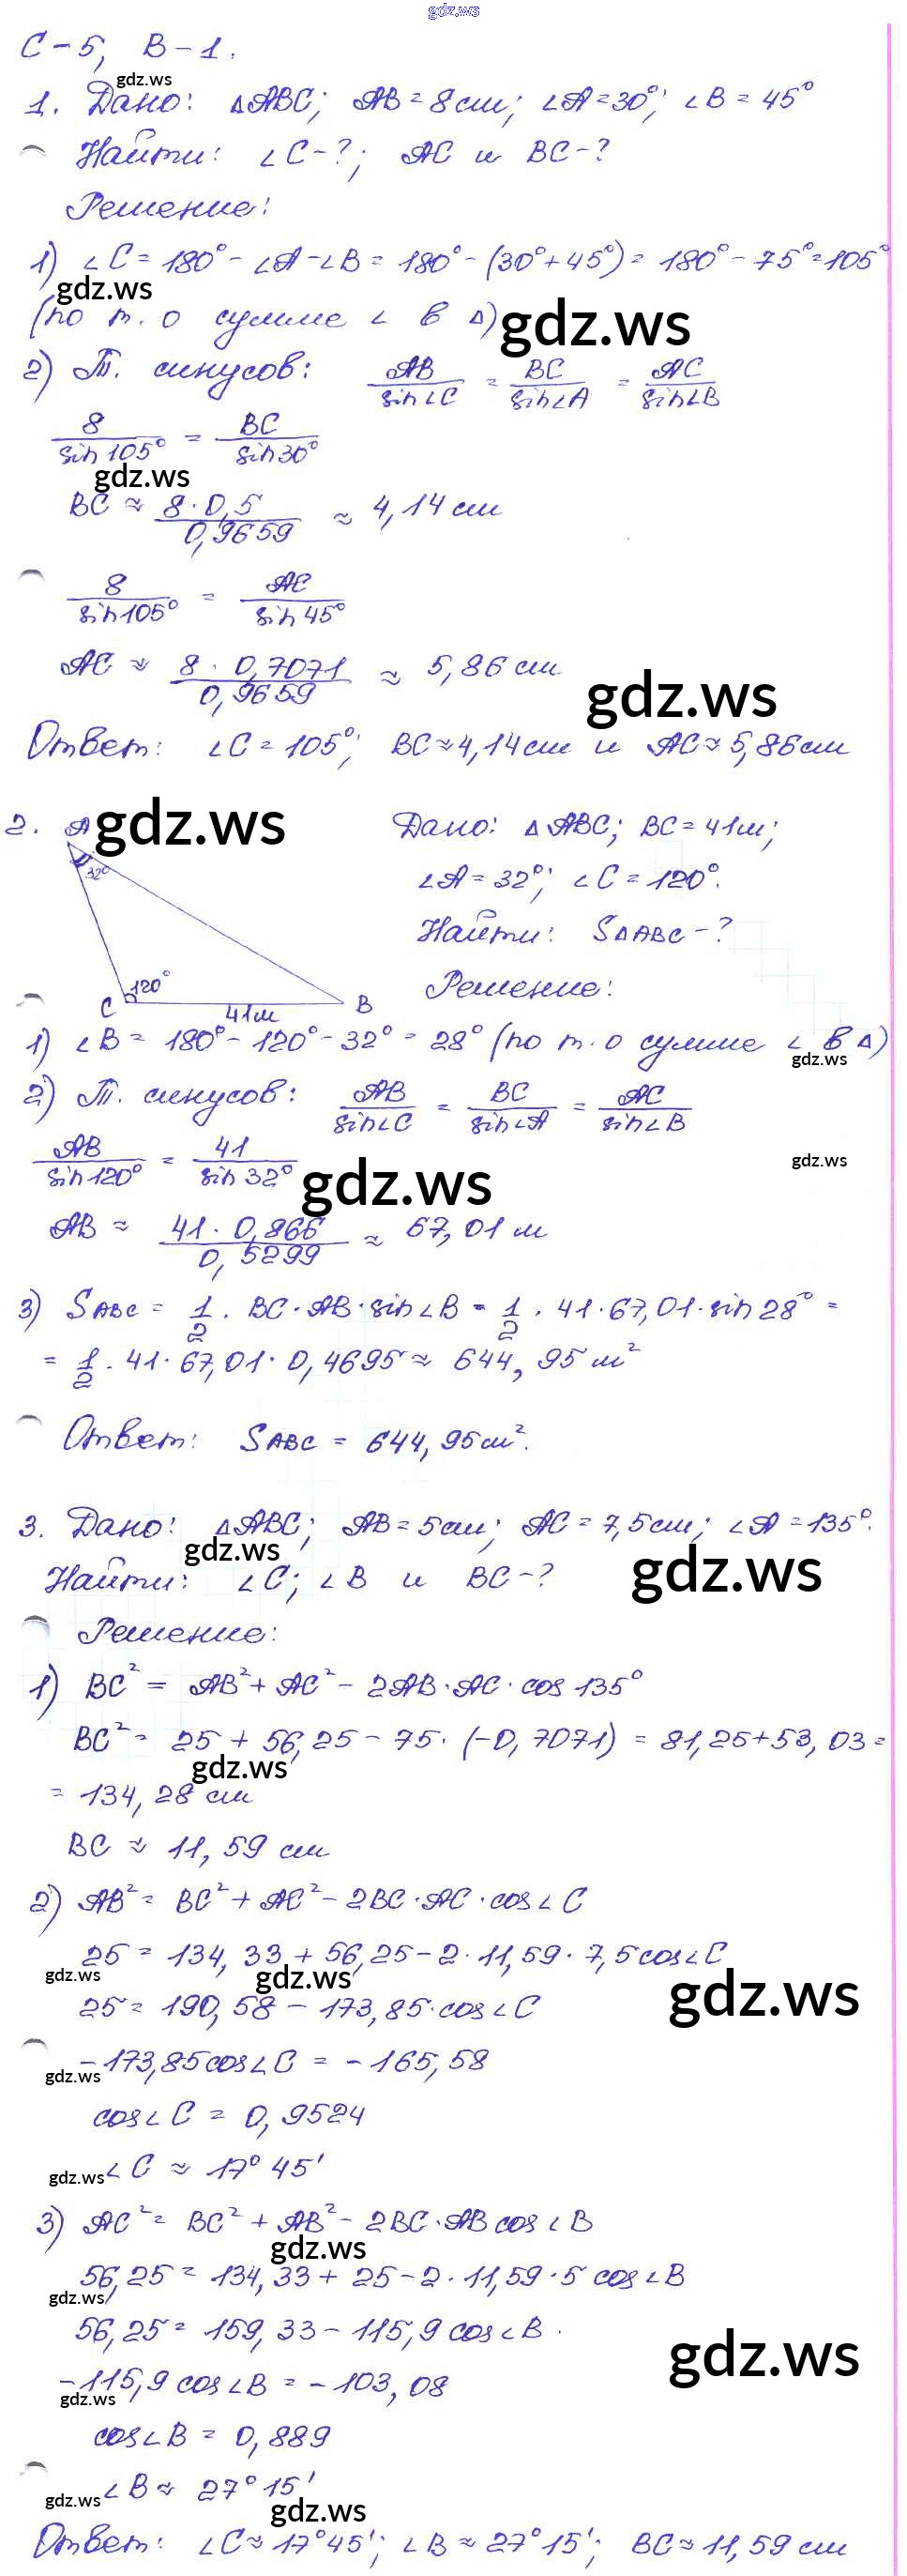 gdz.ws
С-5, В-1.
gdz.ws
1. Дано: ΔABC; AB=8см; ∠A=30°; ∠B=45°
Найти: ∠C-?; AC и BC-?
Решение:
1) ∠C=180°-∠A-∠B=180°-(30°+45°)=180°-75°=105°
gdz.ws
(по т. о сумме ∠ в Δ)
gdz.ws
2) Т. синусов: AB/sin∠C = BC/sin∠A = AC/sin∠B
8/sin105° = BC/sin30°
gdz.ws
BC ≈ 8·0,5/0,9659 ≈ 4,14 см
8/sin105° = AC/sin45°
AC ≈ 8·0,7071/0,9659 ≈ 5,86 см
gdz.ws
Ответ: ∠C=105°; BC≈4,14см и AC≈5,86см
gdz.ws
2. A
32°
120°
C 41м B
Дано: ΔABC; BC=41м;
∠A=32°; ∠C=120°.
Найти: SΔABC-?
Решение:
1) ∠B=180°-120°-32°=28° (по т. о сумме ∠ в Δ)
gdz.ws
2) Т. синусов: AB/sin∠C = BC/sin∠A = AC/sin∠B
AB/sin120° = 41/sin32°
gdz.ws
gdz.ws
AB ≈ 41·0,866/0,5299 ≈ 67,01 м
3) SABC = 1/2·BC·AB·sin∠B = 1/2·41·67,01·sin28° =
= 1/2·41·67,01·0,4695 ≈ 644,95 м²
Ответ: SABC = 644,95м².
3. Дано: ΔABC; AB=5см; AC=7,5см; ∠A=135°.
gdz.ws
Найти: ∠C; ∠B и BC-?
gdz.ws
Решение:
1) BC² = AB²+AC²-2AB·AC·cos135°
BC² = 25+56,25-75·(-0,7071)=81,25+53,03=
gdz.ws
= 134,28 см
BC ≈ 11,59 см
2) AB²=BC²+AC²-2BC·AC·cos∠C
25=134,33+56,25-2·11,59·7,5cos∠C
gdz.ws
gdz.ws
gdz.ws
25=190,58-173,85·cos∠C
-173,85cos∠C=-165,58
gdz.ws
cos∠C=0,9524
∠C≈17°45'
gdz.ws
3) AC²=BC²+AB²-2BC·AB cos∠B
gdz.ws
56,25=134,33+25-2·11,59·5 cos∠B
gdz.ws
56,25=159,33-115,9cos∠B.
gdz.ws
-115,9cos∠B=-103,08
gdz.ws
cos∠B=0,889
∠B≈27°15'
gdz.ws
gdz.ws
Ответ: ∠C≈17°45'; ∠B≈27°15'; BC≈11,59 см